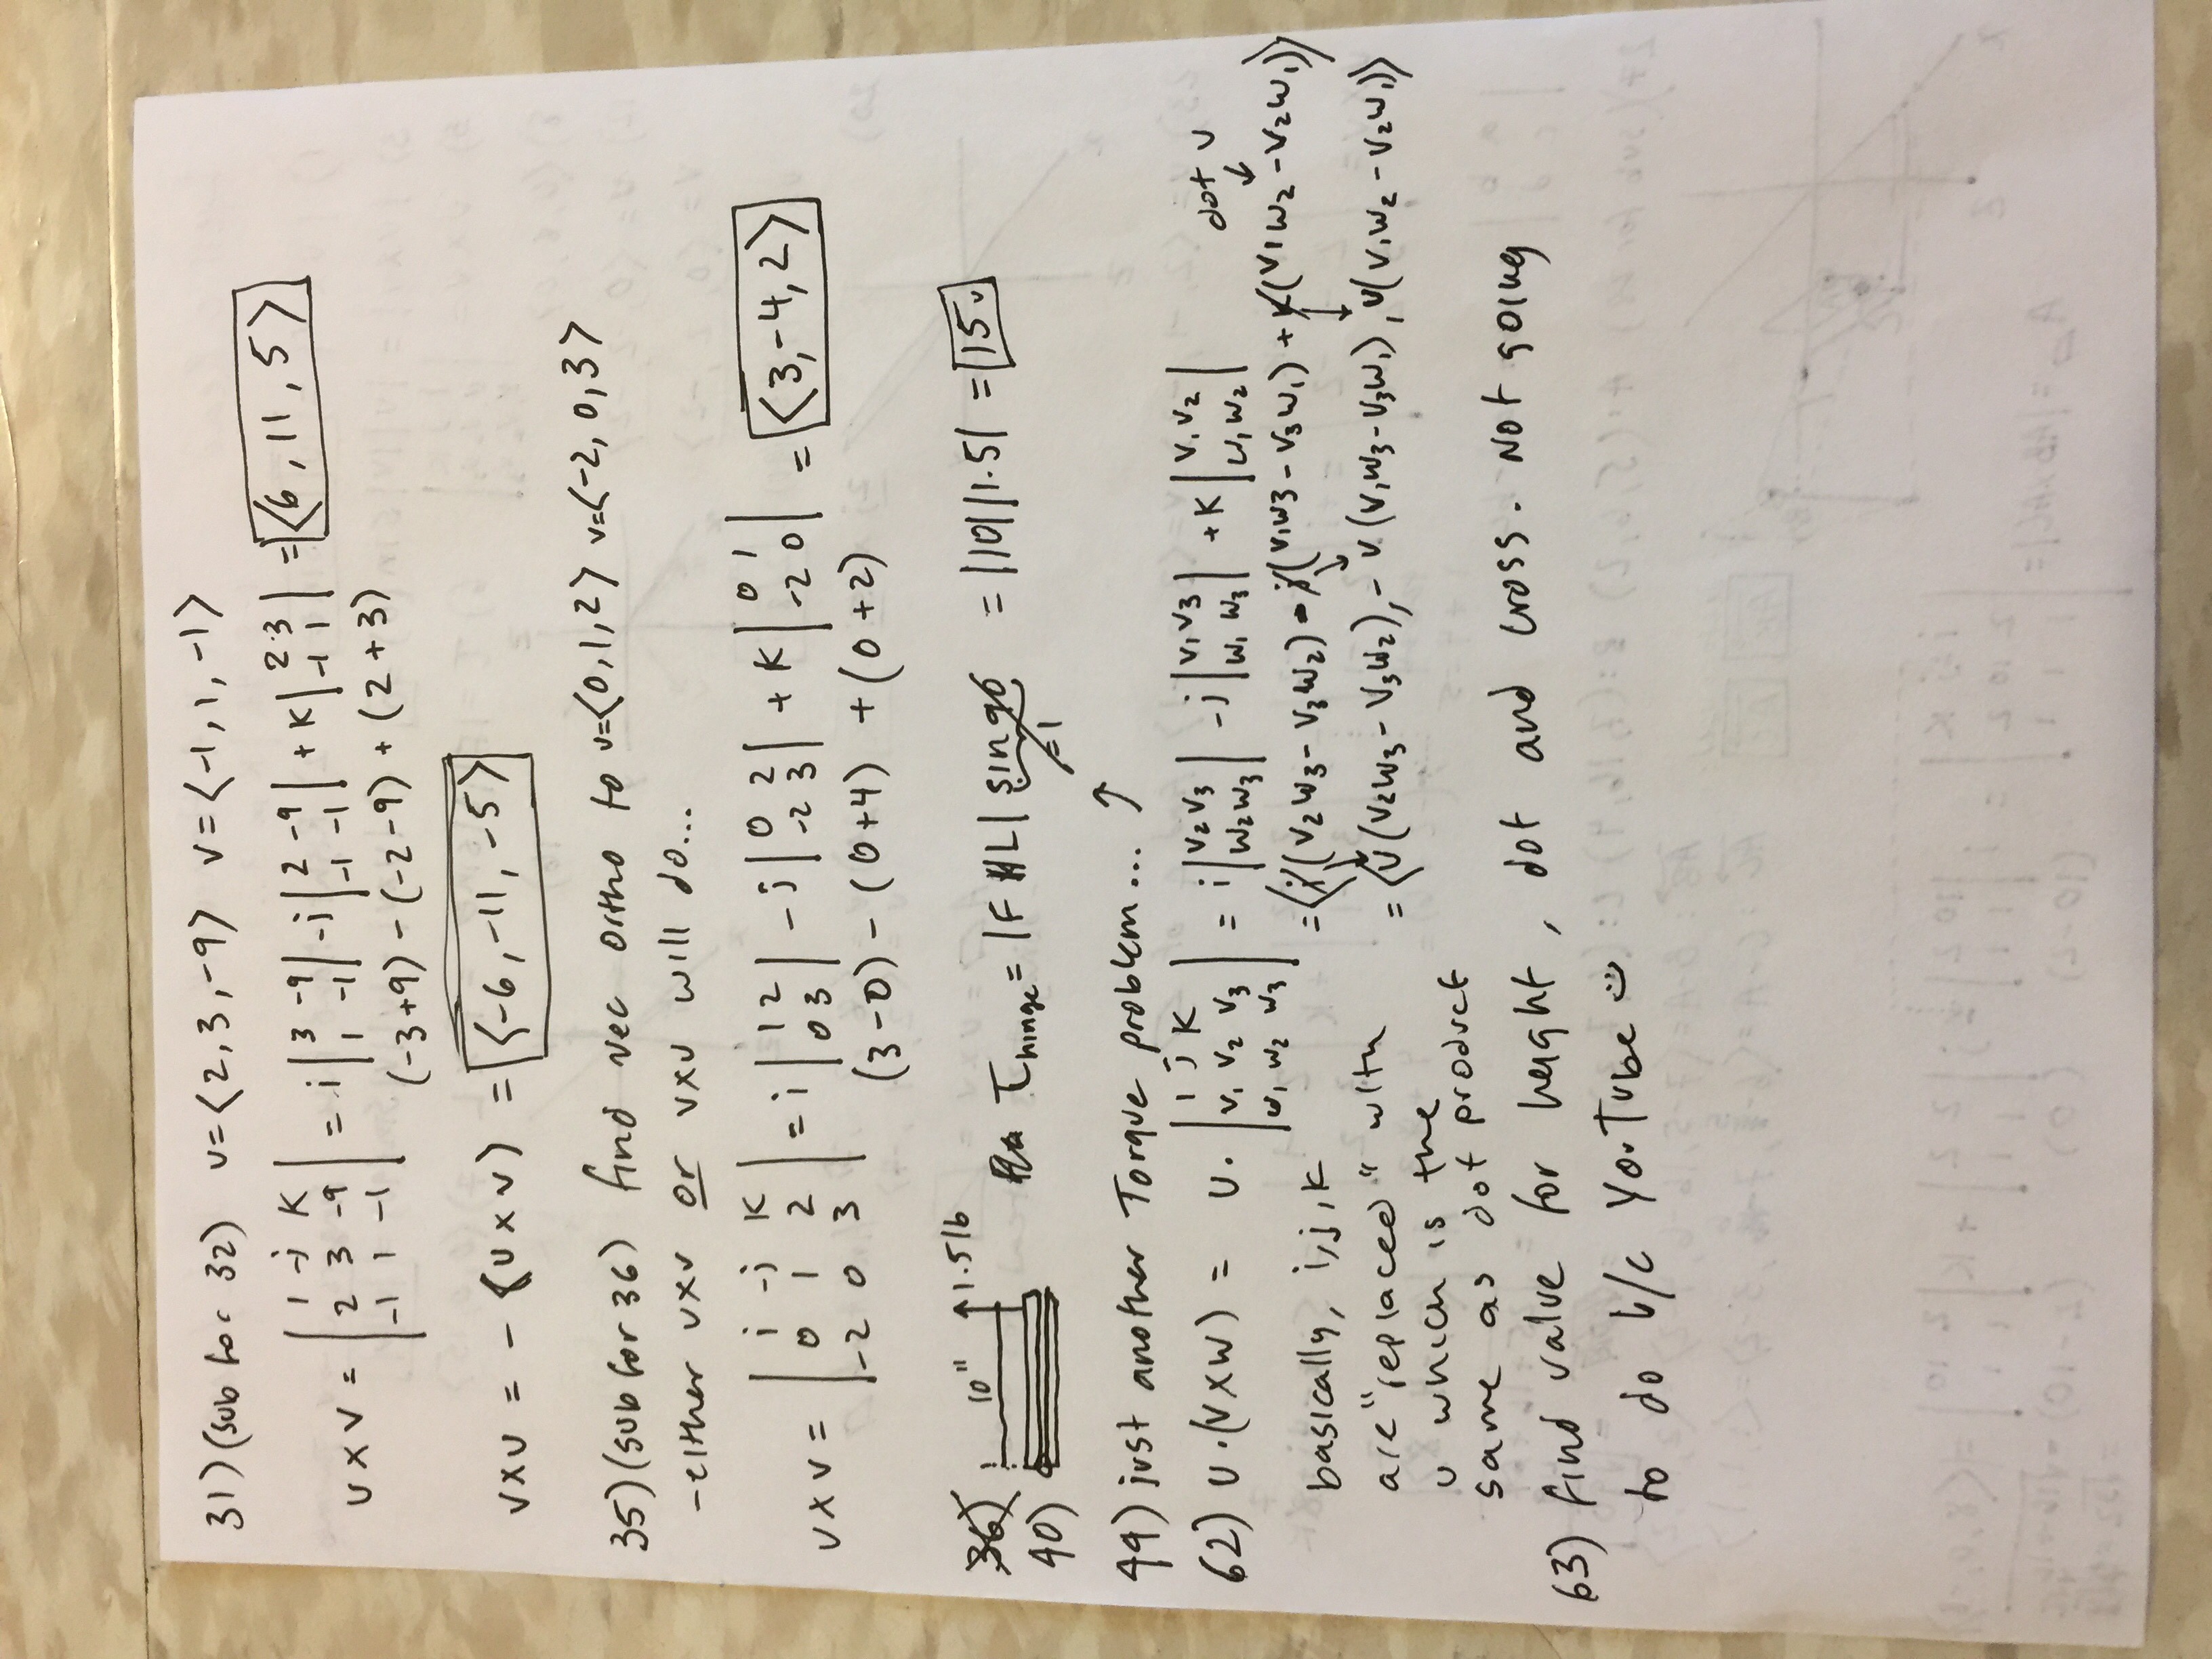 31) (sub for 32) u=⟨2,3,-9⟩ v=⟨-1,1,-1⟩
u×v = |i -j k; 2 3 -9; -1 1 -1| = i|3 -9; 1 -1| -j|2 -9; -1 -1| +k|2 3; -1 1| = ⟨6,11,5⟩
(-3+9) - (-2-9) + (2+3)
v×u = -(u×v) = ⟨-6,-11,-5⟩
35) (sub for 36) find vec ortho to u=⟨0,1,2⟩ v=⟨-2,0,3⟩
-either u×v or v×u will do...
u×v = |i -j k; 0 1 2; -2 0 3| = i|1 2; 0 3| -j|0 2; -2 3| +k|0 1; -2 0| = ⟨3,-4,2⟩
(3-0) - (0+4) + (0+2)
36)
40) 10" 1.5lb τhinge = |F||L| sin90 = |10||1.5| = 15
=1
49) just another Torque problem...
62) u·(v×w) = u·|i j k; v1 v2 v3; w1 w2 w3| = i|v2 v3; w2 w3| -j|v1 v3; w1 w3| +k|v1 v2; w1 w2| dot u
=⟨i(v2w3-v3w2) - j(v1w3-v3w1) + k(v1w2-v2w1)⟩
=⟨u(v2w3-v3w2), -u(v1w3-v3w1), u(v1w2-v2w1)⟩
basically, i,j,k
are "replaced" with
u which is the
same as dot product
63) find value for height, dot and cross. Not going
to do b/c YouTube